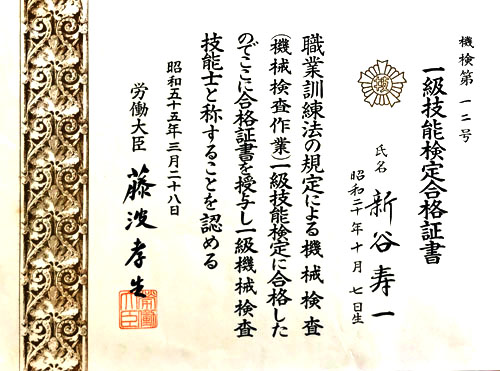 機検第一二号
一級技能検定合格証書
氏名 新谷寿一
昭和二十年十月七日生
職業訓練法の規定による機械検査
（機械検査作業）一級技能検定に合格した
のでここに合格証書を授与し一級機械検査
技能士と称することを認める
昭和五十五年三月二十八日
労働大臣 藤波孝生
労働大臣